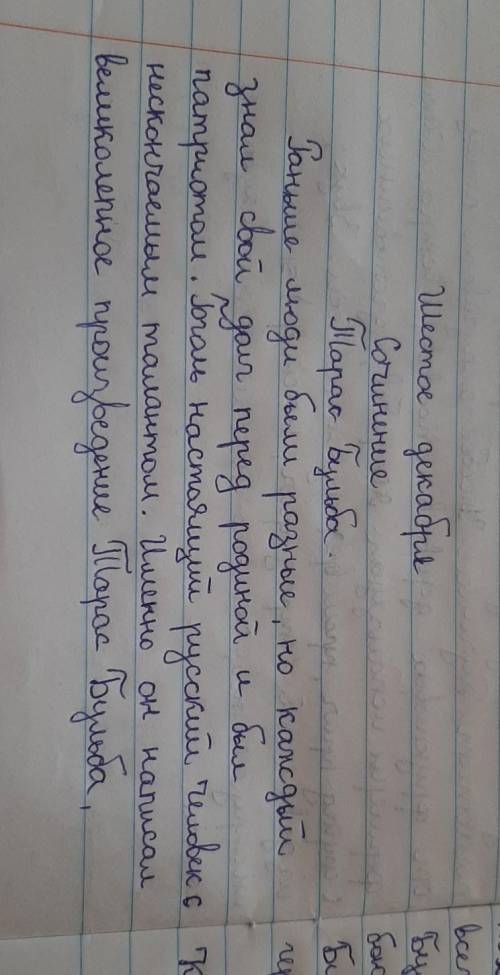 Шестое декабря
Сочинение
Тарас Бульба.
Раньше люди были разные, но каждый
знал свой долг перед родиной и был
патриотом. Гоголь настоящий русский человек с
нескончаемым талантом. Именно он написал
великолепное произведение Тарас Бульба,
все